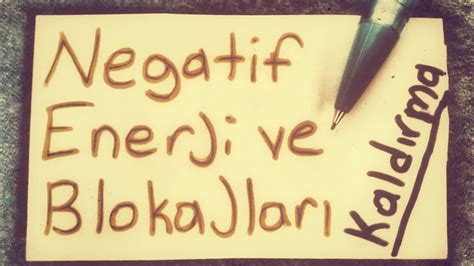 Negatif
Enerji ve
Blokajları
Kaldırma